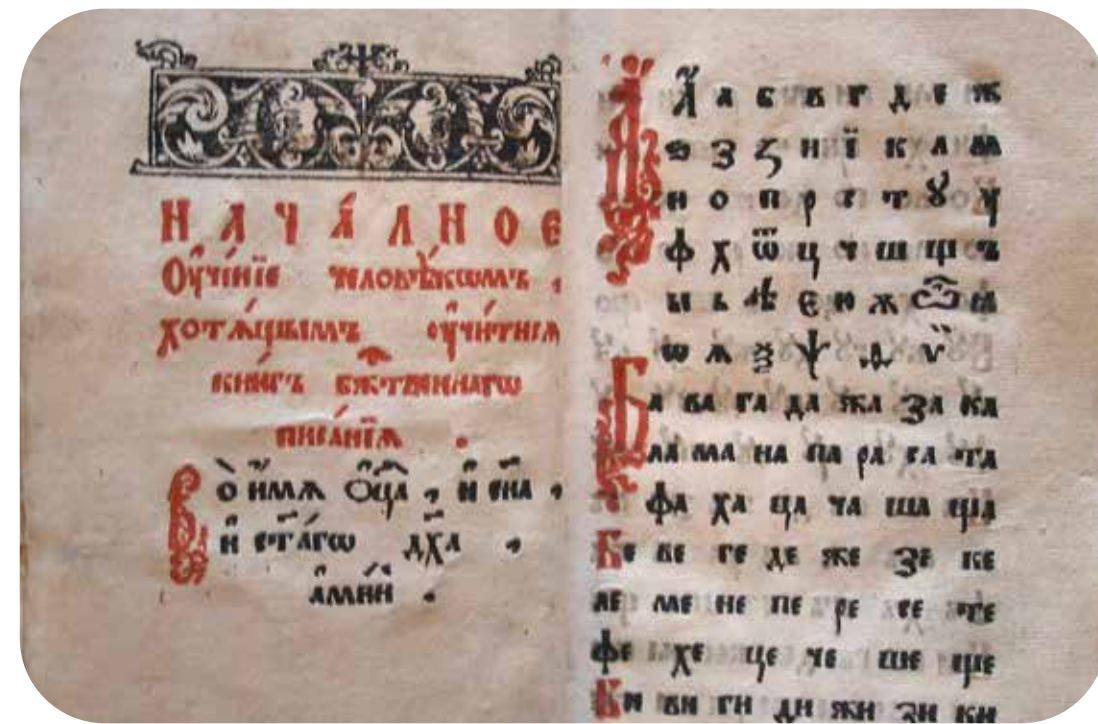 НАЧА́ЛНОЕ
Оу҆че́нїе человѣ́кѡмъ ,
хотѧ́щымъ оу҆чи́тисѧ
кни́гъ бжⷭ҇твеннагѡ
писа́нїѧ .
Во и҆́мѧ Ѻ҆ц҃а̀ , и҆ сн҃а ,
и҆ ст҃а́гѡ дх҃а .
а҆ми́нь .
А҆ а б в г д е ж
ѕ з ꙁ и ї к л м
н о п р с т ꙋ у
ф х ѿ ц ч ш щ ъ
ы ь ѣ є ю ѫ ѽ ꙗ
ѡ ѧ ѯ ѱ ѳ ѷ
Ба ва га да жа за ка
ла ма на па ра са та
фа ха ца ча ша ща
Бе ве ге де же зе ке
ле ме не пе ре се те
фе хе це че ше ще
Би ви ги ди жи зи ки